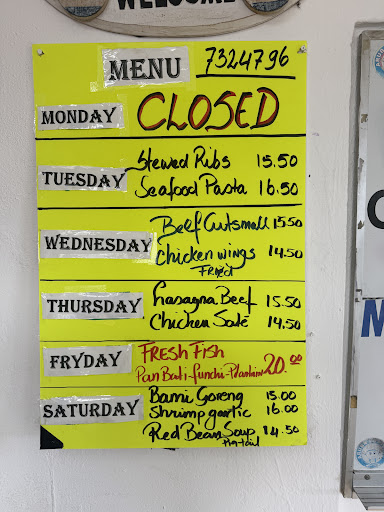 WELCOME
MENU 7324796
MONDAY CLOSED
TUESDAY
Stewed Ribs 15.50
Seafood Pasta 16.50
WEDNESDAY
Beef Cutsmall 15.50
Chicken wings 14.50
Fried
THURSDAY
Lasagna Beef 15.50
Chicken Saté 14.50
FRYDAY
FRESH FISH
Pan Bati-funchi-Plantain 20.00
SATURDAY
Bami Goreng 15.00
Shrimp garlic 16.00
Red Bean Soup 14.50
Pig-tail